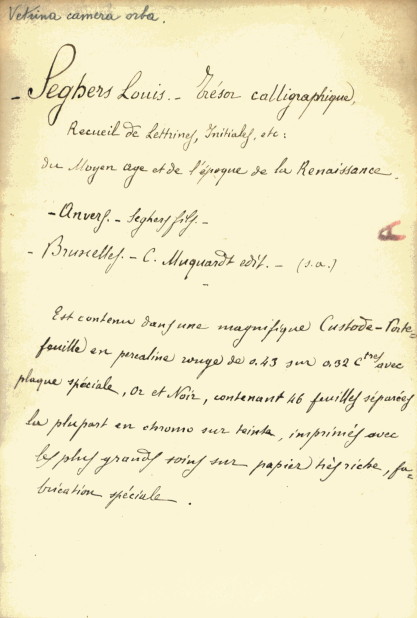 Vetrina camera orba.
- Seghers Louis. - Trésor calligraphique,
Recueil de Lettrines, Initiales, etc:
du Moyen age et de l'époque de la Renaissance.
- Anvers. - Seghers fils. -
- Bruxelles. - C. Muquardt edit. - (s.a.)
Est contenu dans une magnifique Custode-Porte=
feuille en percaline rouge de 0.43 sur 0.32 Ctres avec
plaque spéciale, Or et Noir, contenant 46 feuilles séparées
la plupart en chromo sur teinte, imprimés avec
les plus grands soins sur papier très riche, fa-
brication spéciale.